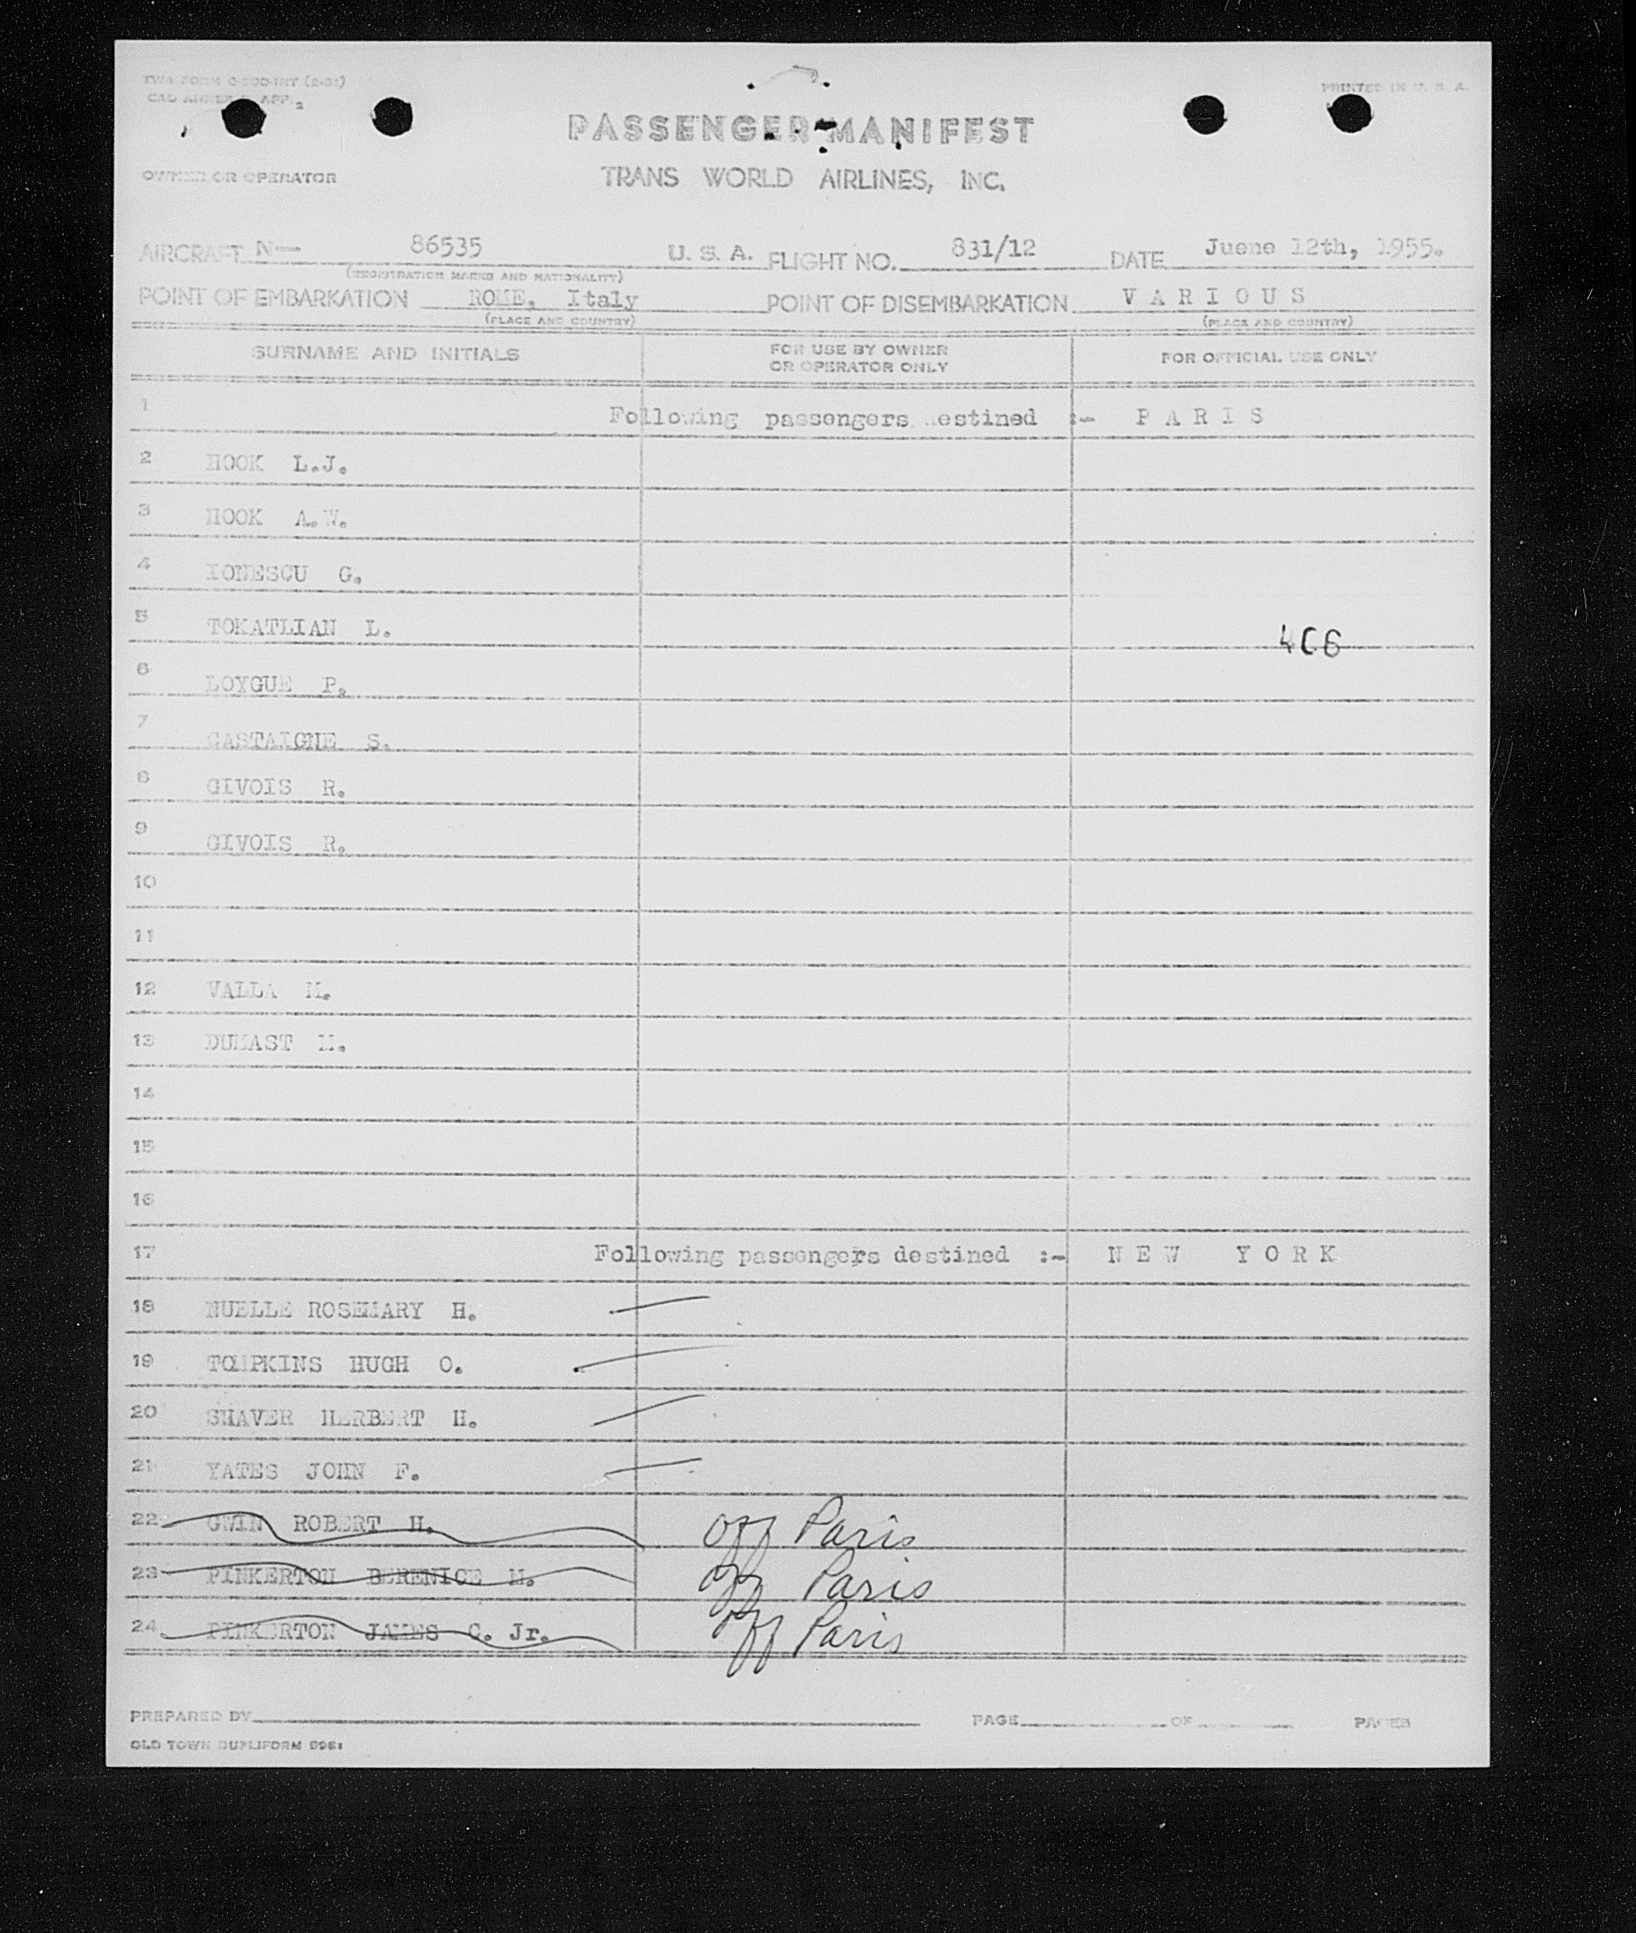 PRINTED IN U. S. A.
PASSENGER MANIFEST
OWNER OR OPERATOR
TRANS WORLD AIRLINES, INC.
AIRCRAFT N— 86535 U. S. A. FLIGHT NO. 831/12 DATE Juene 12th, 1955.
(REGISTRATION MARKS AND NATIONALITY)
POINT OF EMBARKATION ROME, Italy POINT OF DISEMBARKATION V A R I O U S
(PLACE AND COUNTRY) (PLACE AND COUNTRY)
SURNAME AND INITIALS FOR USE BY OWNER OR OPERATOR ONLY FOR OFFICIAL USE ONLY
1 Following passengers destined :- P A R I S
2 HOOK L.J.
3 HOOK A.W.
4 IONESCU G.
5 TOKATLIAN L. 406
6 LOYGUE P.
7 CASTAIGNE S.
8 GIVOIS R.
9 GIVOIS R.
10
11
12 VALLA M.
13 DUMAST M.
14
15
16
17 Following passengers destined :- N E W Y O R K
18 NUELLE ROSEMARY H.
19 TOMPKINS HUGH O.
20 SHAVER HERBERT H.
21 YATES JOHN F.
22 GWIN ROBERT H. off Paris
23 PINKERTON BERENICE M. off Paris
24 PINKERTON JAMES C. Jr. off Paris
PREPARED BY PAGE OF PAGES
OLD TOWN DUPLIFORM